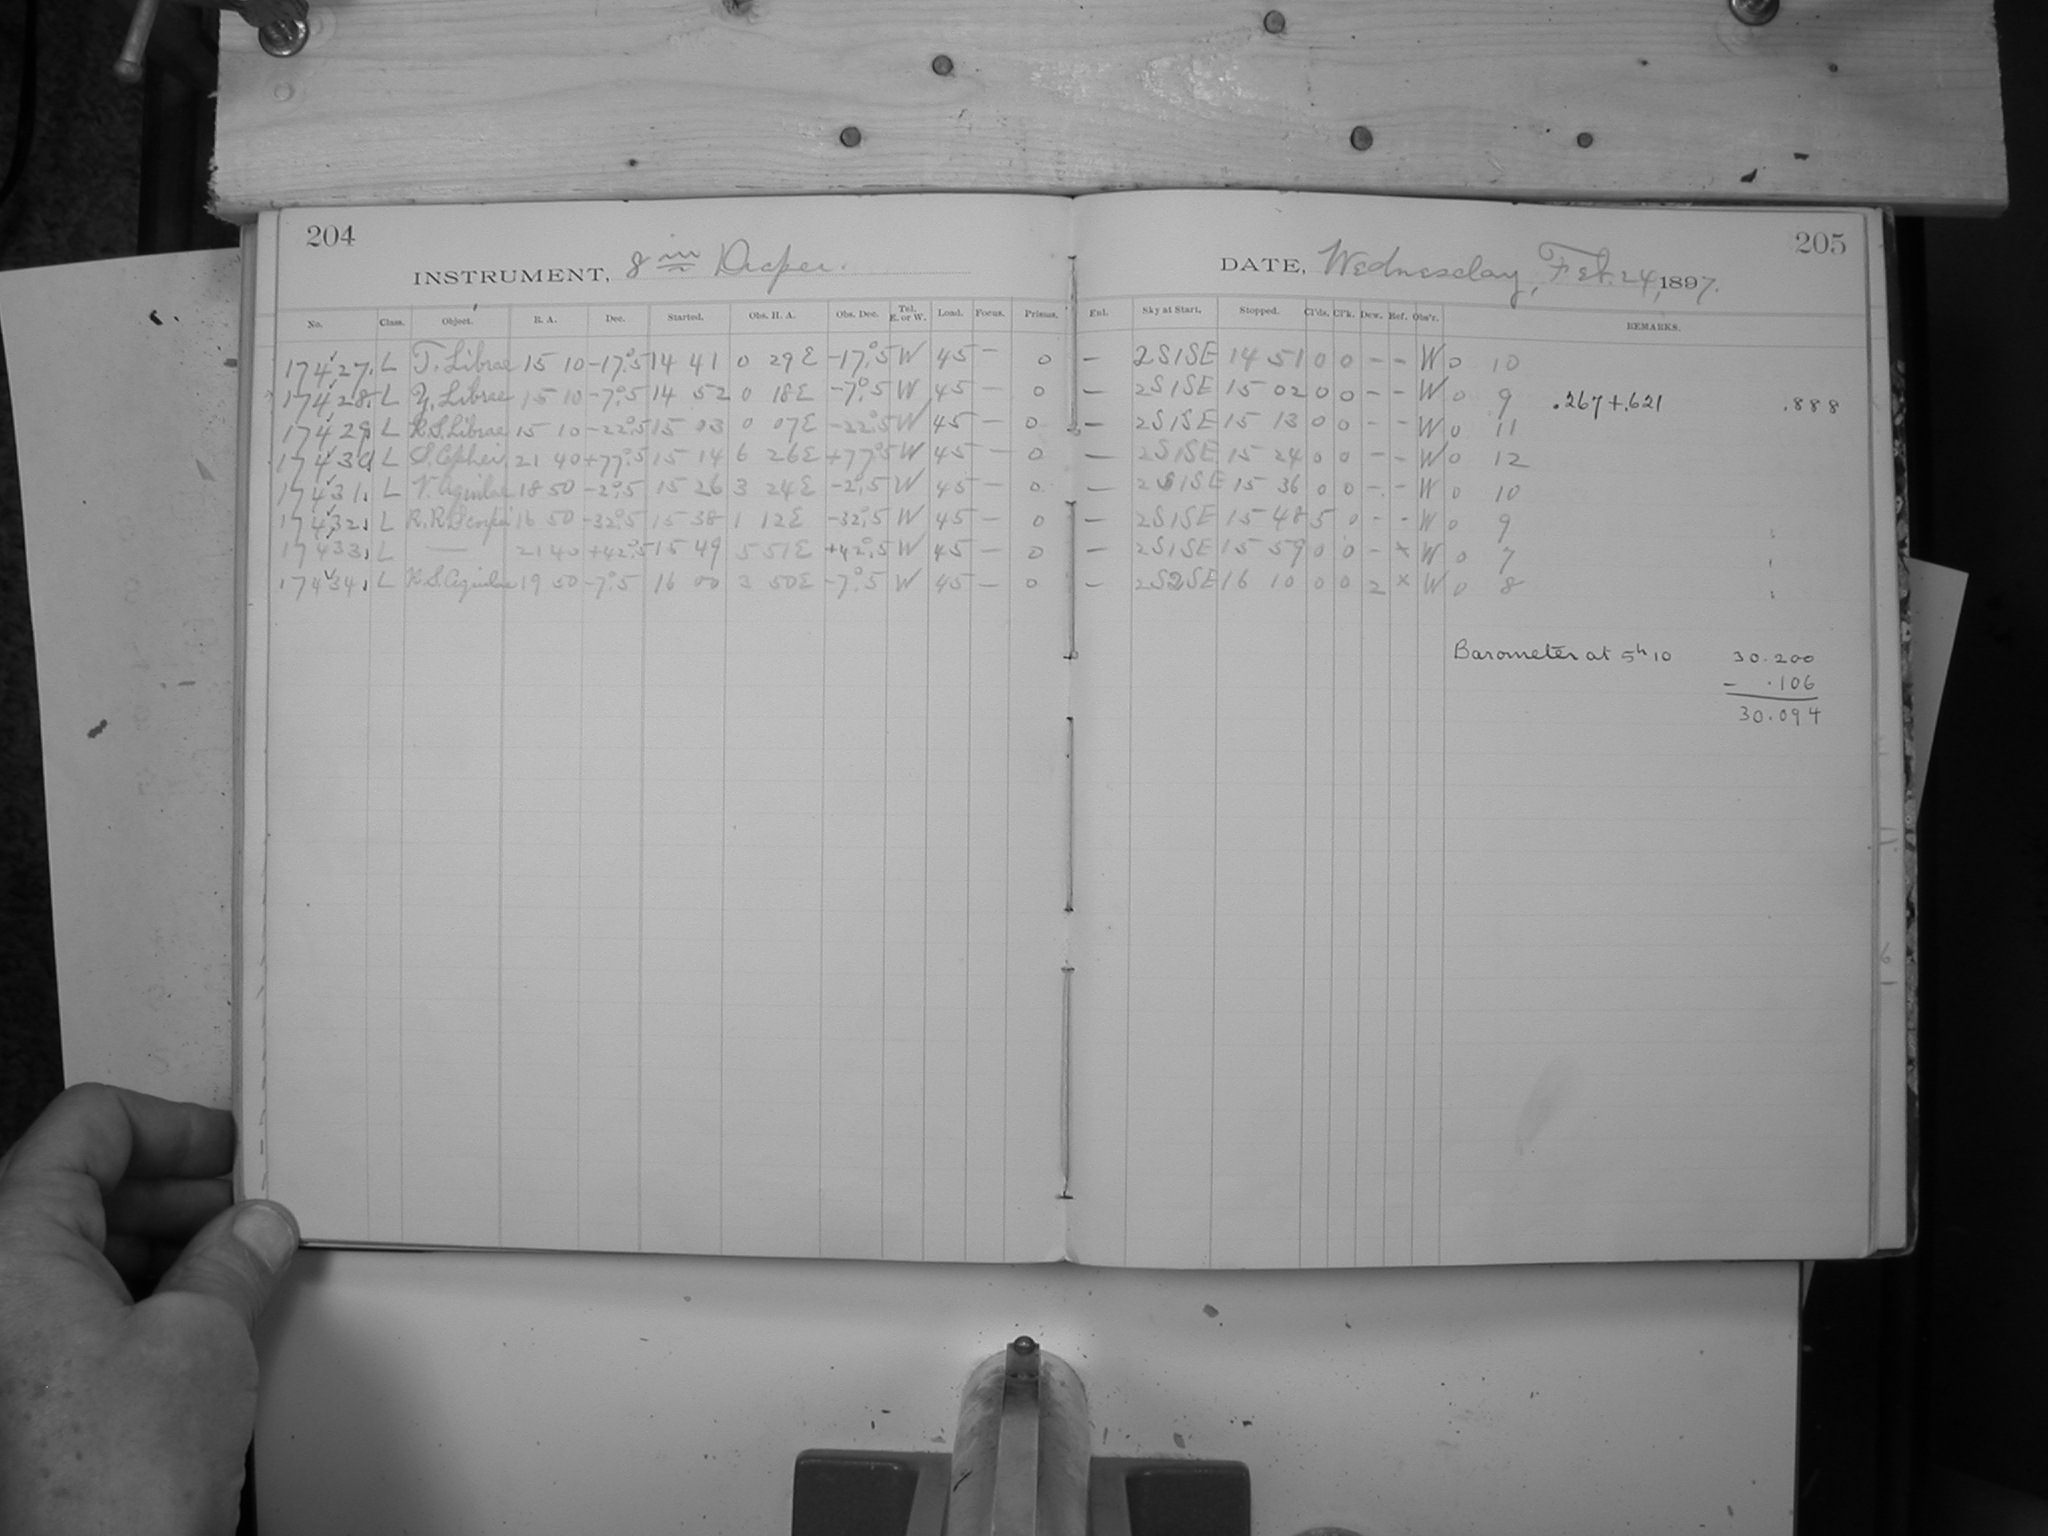 204
INSTRUMENT, 8 in Draper.
No. Class. Object. R. A. Dec. Started. Obs. H. A. Obs. Dec. Tel. E. or W. Load. Focus. Prisms.
17427. L T. Librae 15 10 -17°.5 14 41 0 29E -17°.5 W 45 - 0
17428. L Y. Librae 15 10 -7°.5 14 52 0 18E -7°.5 W 45 - 0
17429. L R.S. Librae 15 10 -22°.5 15 03 0 07E -22°.5 W 45 - 0
17430. L S. Cephei 21 40 +77°.5 15 14 6 26E +77°.5 W 45 - 0
17431. L V. Aquilae 18 50 -2°.5 15 26 3 24E -2°.5 W 45 - 0
17432. L R.R. Scorpii 16 50 -32°.5 15 38 1 12E -32°.5 W 45 - 0
17433. L — 21 40 +42°.5 15 49 5 51E +42°.5 W 45 - 0
17434. L R.S. Aquilae 19 50 -7°.5 16 00 3 50E -7°.5 W 45 - 0
205
DATE, Wednesday, Feb. 24, 1897.
Sky at Start. Stopped. Cl'ds. Cl'k. Dew. Ref. Obs'r. REMARKS.
- 2S1SE 14 51 0 0 - - W 0 10
- 2S1SE 15 02 0 0 - - W 0 9 .267+.621 .888
- 2S1SE 15 13 0 0 - - W 0 11
- 2S1SE 15 24 0 0 - - W 0 12
- 2S1SE 15 36 0 0 - - W 0 10
- 2S1SE 15 48 5 0 - - W 0 9
- 2S1SE 15 59 0 0 - x W 0 7
- 2S2SE 16 10 0 0 2 x W 0 8
Barometer at 5h 10 30.200
- .106
30.094